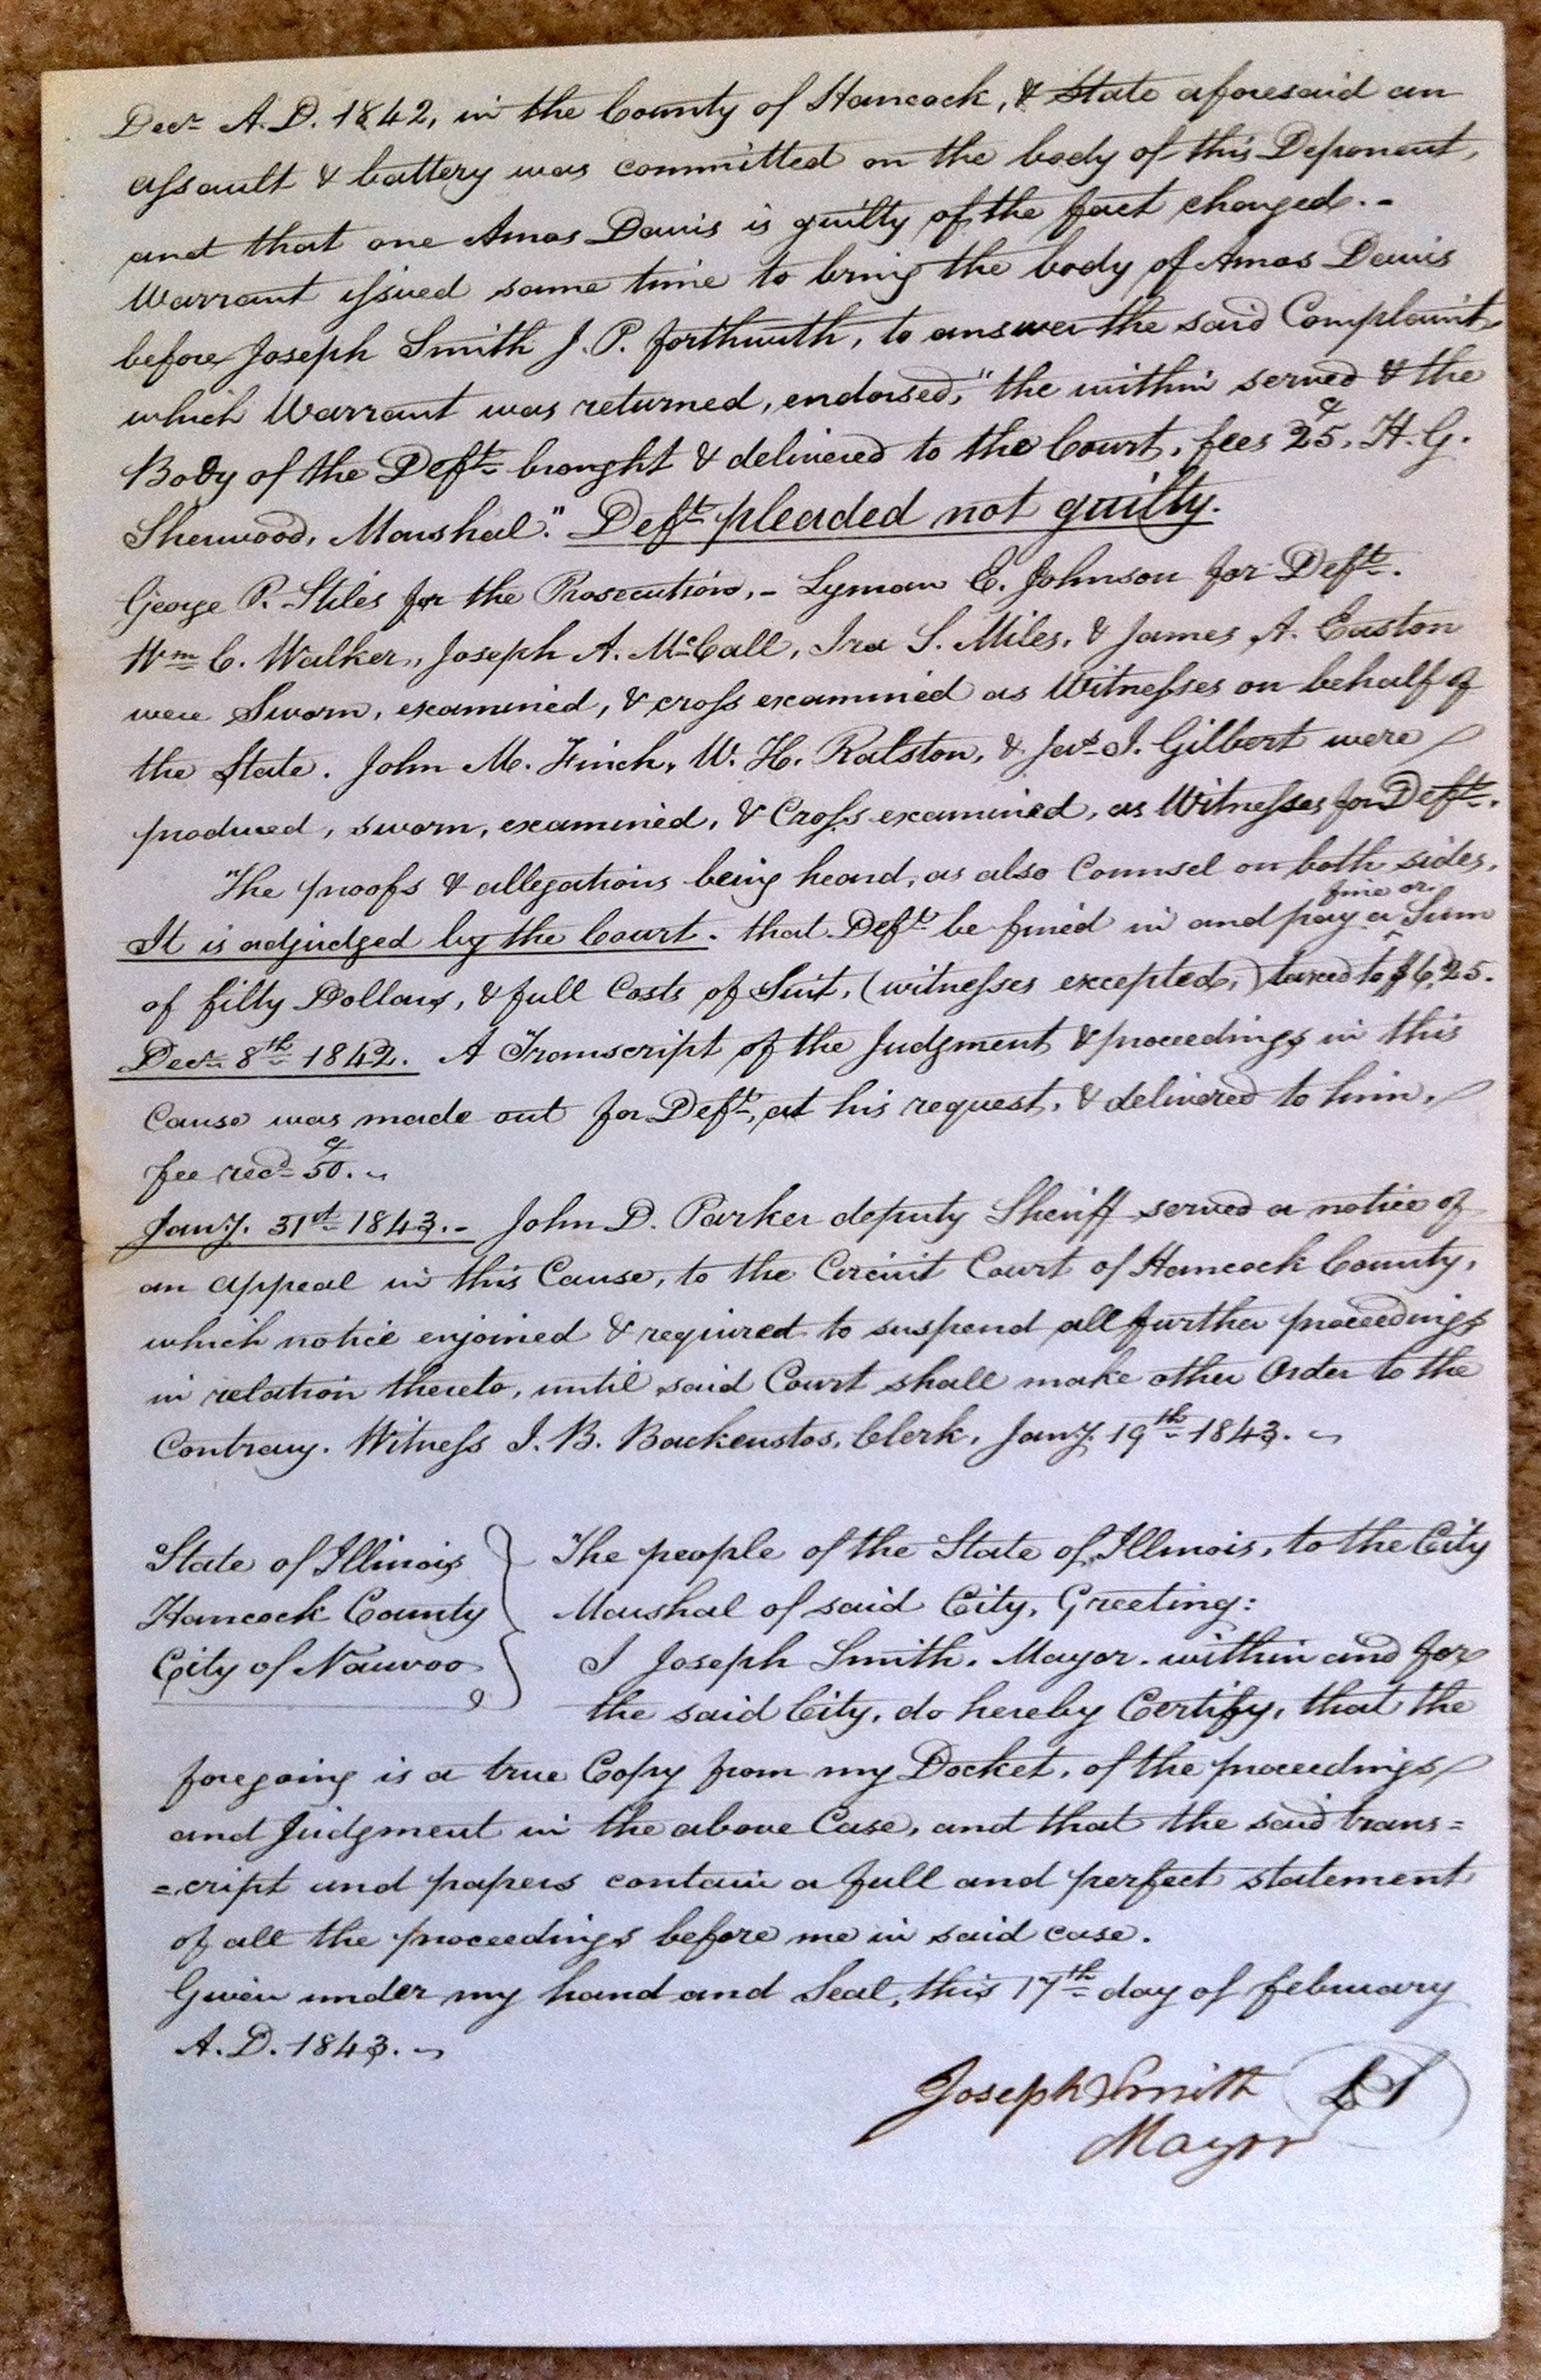 Decr. A.D. 1842, in the County of Hancock, & State aforesaid an
assault & battery was committed on the body of this Deponent,
and that one Amos Davis is guilty of the fact charged. -
Warrant issued same time to bring the body of Amos Davis
before Joseph Smith J. P. forthwith, to answer the said Complaint
which Warrant was returned, endorsed, "the within served & the
Body of the Deft. brought & delivered to the Court, fees 25c, H. G.
Sherwood, Marshal." Deft. pleaded not guilty.
George P. Stiles for the Prosecution, - Lyman E. Johnson for Deft.
Wm C. Walker, Joseph A. McCall, Ira S. Miles, & James A. Easton
were Sworn, examined, & cross examined as Witnesses on behalf of
the State. John M. Finch, W. H. Ralston, & Jas. I. Gilbert were
produced, sworn, examined, & Cross examined, as Witnesses for Deft.
The proofs & allegations being heard, as also Counsel on both sides,
It is adjudged by the Court. that Deft be fined in and pay a fine or Sum
of fifty Dollars, & full Costs of Suit, (witnesses excepted,) taxed to $6,25.
Decr. 8th 1842. A Transcript of the Judgment & proceedings in this
Cause was made out for Deft, at his request, & delivered to him,
fee recd. 50c. ~
Jany. 31st 1843. - John D. Parker deputy Sheriff served a notice of
an appeal in this Cause, to the Circuit Court of Hancock County,
which notice enjoined & required to suspend all further proceedings
in relation thereto, until said Court shall make other Order to the
Contrary. Witness J. B. Backenstos, Clerk, Jany. 19th 1843. ~
State of Illinois
Hancock County
City of Nauvoo
The people of the State of Illinois, to the City
Marshal of said City, Greeting:
I Joseph Smith. Mayor. within and for
the said City, do hereby Certify, that the
foregoing is a true Copy from my Docket, of the proceedings
and Judgment in the above Case, and that the said trans=
=cript and papers contain a full and perfect statement
of all the proceedings before me in said case.
Given under my hand and Seal, this 17th day of february
A.D. 1843. ~
Joseph Smith LS
Mayor